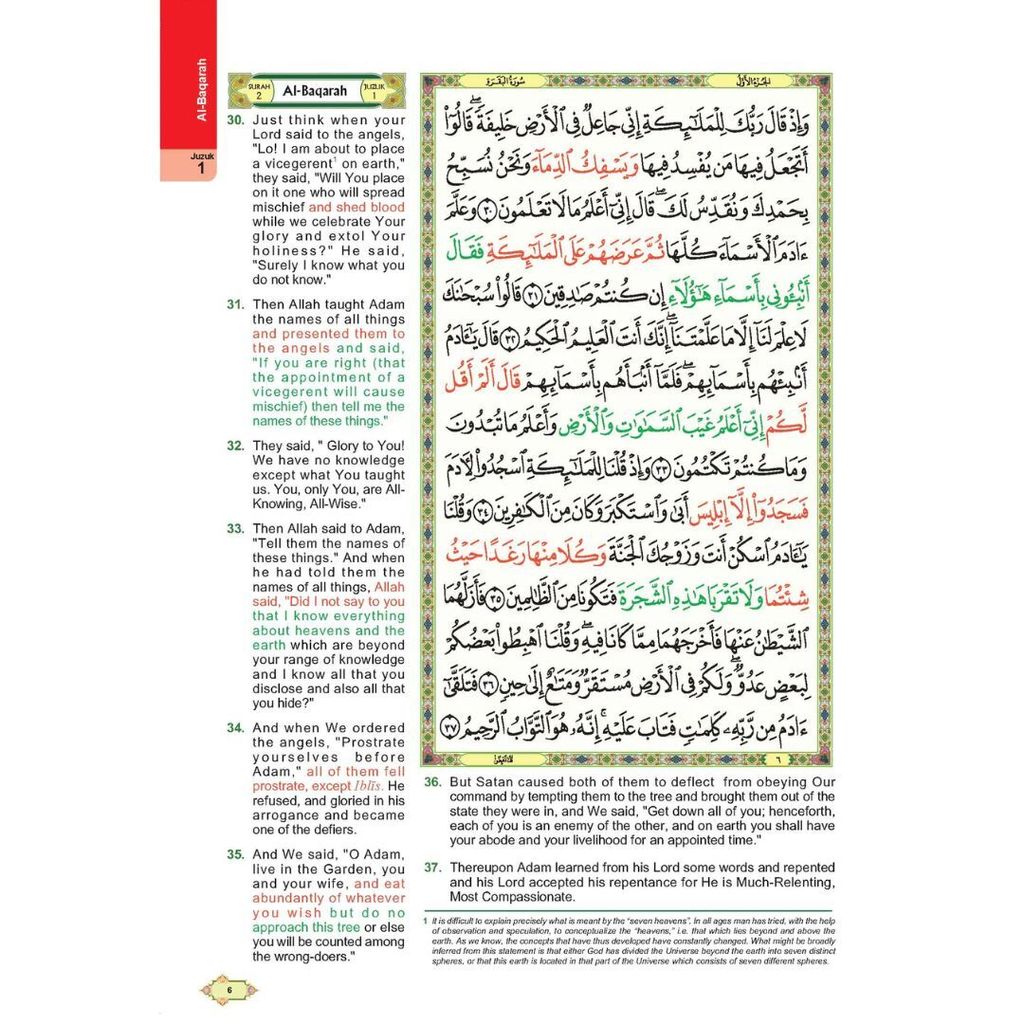 Al-Baqarah
Juzuk
1
SURAH
2
Al-Baqarah
JUZUK
1
30. Just think when your
Lord said to the angels,
"Lo! I am about to place
a vicegerent¹ on earth,"
they said, "Will You place
on it one who will spread
mischief and shed blood
while we celebrate Your
glory and extol Your
holiness?" He said,
"Surely I know what you
do not know."
31. Then Allah taught Adam
the names of all things
and presented them to
the angels and said,
"If you are right (that
the appointment of a
vicegerent will cause
mischief) then tell me the
names of these things."
32. They said, " Glory to You!
We have no knowledge
except what You taught
us. You, only You, are All-
Knowing, All-Wise."
33. Then Allah said to Adam,
"Tell them the names of
these things." And when
he had told them the
names of all things, Allah
said, "Did I not say to you
that I know everything
about heavens and the
earth which are beyond
your range of knowledge
and I know all that you
disclose and also all that
you hide?"
34. And when We ordered
the angels, "Prostrate
yourselves before
Adam," all of them fell
prostrate, except Iblīs. He
refused, and gloried in his
arrogance and became
one of the defiers.
35. And We said, "O Adam,
live in the Garden, you
and your wife, and eat
abundantly of whatever
you wish but do no
approach this tree or else
you will be counted among
the wrong-doers."
الجزء الأول
سورة البقرة
وَإِذْ قَالَ رَبُّكَ لِلْمَلَـٰٓئِكَةِ إِنِّى جَاعِلٌ فِى ٱلْأَرْضِ خَلِيفَةً ۖ قَالُوٓا۟
أَتَجْعَلُ فِيهَا مَن يُفْسِدُ فِيهَا وَيَسْفِكُ ٱلدِّمَآءَ وَنَحْنُ نُسَبِّحُ
بِحَمْدِكَ وَنُقَدِّسُ لَكَ ۖ قَالَ إِنِّىٓ أَعْلَمُ مَا لَا تَعْلَمُونَ ٣٠ وَعَلَّمَ
ءَادَمَ ٱلْأَسْمَآءَ كُلَّهَا ثُمَّ عَرَضَهُمْ عَلَى ٱلْمَلَـٰٓئِكَةِ فَقَالَ
أَنۢبِـُٔونِى بِأَسْمَآءِ هَـٰٓؤُلَآءِ إِن كُنتُمْ صَـٰدِقِينَ ٣١ قَالُوا۟ سُبْحَـٰنَكَ
لَا عِلْمَ لَنَآ إِلَّا مَا عَلَّمْتَنَآ ۖ إِنَّكَ أَنتَ ٱلْعَلِيمُ ٱلْحَكِيمُ ٣٢ قَالَ يَـٰٓـَٔادَمُ
أَنۢبِئْهُم بِأَسْمَآئِهِمْ ۖ فَلَمَّآ أَنۢبَأَهُم بِأَسْمَآئِهِمْ قَالَ أَلَمْ أَقُل
لَّكُمْ إِنِّىٓ أَعْلَمُ غَيْبَ ٱلسَّمَـٰوَٰتِ وَٱلْأَرْضِ وَأَعْلَمُ مَا تُبْدُونَ
وَمَا كُنتُمْ تَكْتُمُونَ ٣٣ وَإِذْ قُلْنَا لِلْمَلَـٰٓئِكَةِ ٱسْجُدُوا۟ لِـَٔادَمَ
فَسَجَدُوٓا۟ إِلَّآ إِبْلِيسَ أَبَىٰ وَٱسْتَكْبَرَ وَكَانَ مِنَ ٱلْكَـٰفِرِينَ ٣٤ وَقُلْنَا
يَـٰٓـَٔادَمُ ٱسْكُنْ أَنتَ وَزَوْجُكَ ٱلْجَنَّةَ وَكُلَا مِنْهَا رَغَدًا حَيْثُ
شِئْتُمَا وَلَا تَقْرَبَا هَـٰذِهِ ٱلشَّجَرَةَ فَتَكُونَا مِنَ ٱلظَّـٰلِمِينَ ٣٥ فَأَزَلَّهُمَا
ٱلشَّيْطَـٰنُ عَنْهَا فَأَخْرَجَهُمَا مِمَّا كَانَا فِيهِ ۖ وَقُلْنَا ٱهْبِطُوا۟ بَعْضُكُمْ
لِبَعْضٍ عَدُوٌّ ۖ وَلَكُمْ فِى ٱلْأَرْضِ مُسْتَقَرٌّ وَمَتَـٰعٌ إِلَىٰ حِينٍ ٣٦ فَتَلَقَّىٰٓ
ءَادَمُ مِن رَّبِّهِۦ كَلِمَـٰتٍ فَتَابَ عَلَيْهِ ۚ إِنَّهُۥ هُوَ ٱلتَّوَّابُ ٱلرَّحِيمُ ٣٧
٦
36. But Satan caused both of them to deflect from obeying Our
command by tempting them to the tree and brought them out of the
state they were in, and We said, "Get down all of you; henceforth,
each of you is an enemy of the other, and on earth you shall have
your abode and your livelihood for an appointed time."
37. Thereupon Adam learned from his Lord some words and repented
and his Lord accepted his repentance for He is Much-Relenting,
Most Compassionate.
1 It is difficult to explain precisely what is meant by the "seven heavens". In all ages man has tried, with the help
of observation and speculation, to conceptualize the "heavens," i.e. that which lies beyond and above the
earth. As we know, the concepts that have thus developed have constantly changed. What might be broadly
inferred from this statement is that either God has divided the Universe beyond the earth into seven distinct
spheres, or that this earth is located in that part of the Universe which consists of seven different spheres.
6